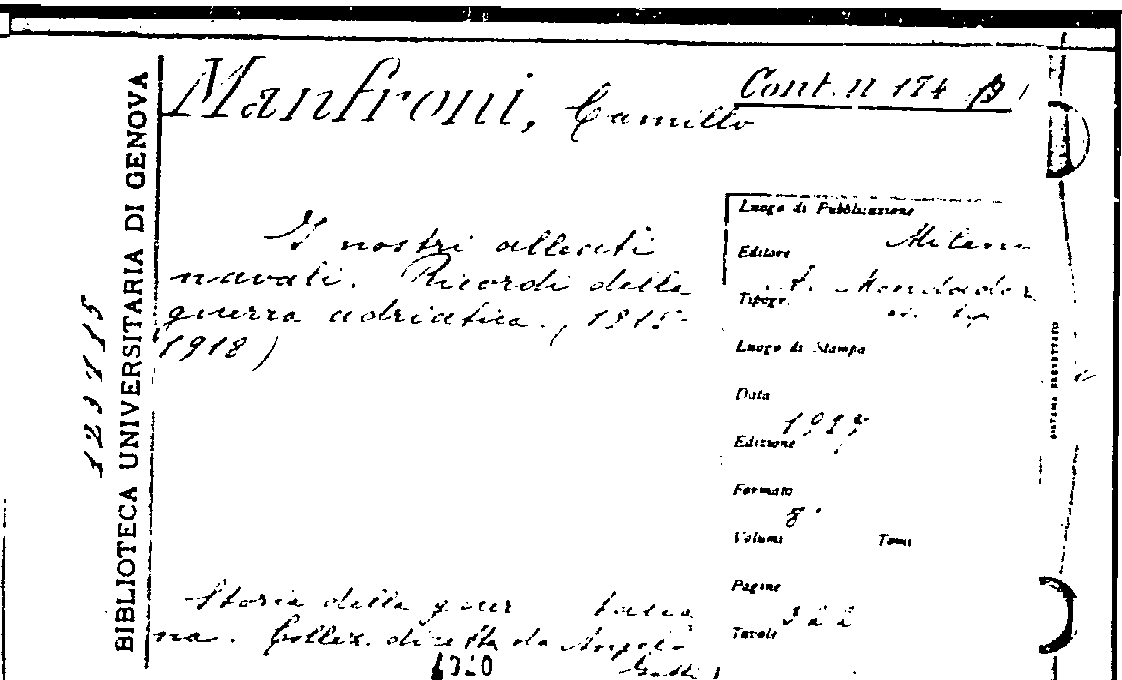 Manfroni, Camillo
Cont. n 174 B
I nostri alleati
navali. Ricordi della
guerra adriatica. (1915-
1918)
Luogo di Pubblicazione
Milano
Editore
A. Mondador
Tipogr.
Luogo di Stampa
Data
Edizione
Formato
8°
Volumi Tomi
Pagine
322
Tavole
Storia della guer
na. Collez. diretta da Angelo
Gatti)
BIBLIOTECA UNIVERSITARIA DI GENOVA
123415
SISTEMA BREVETTATO